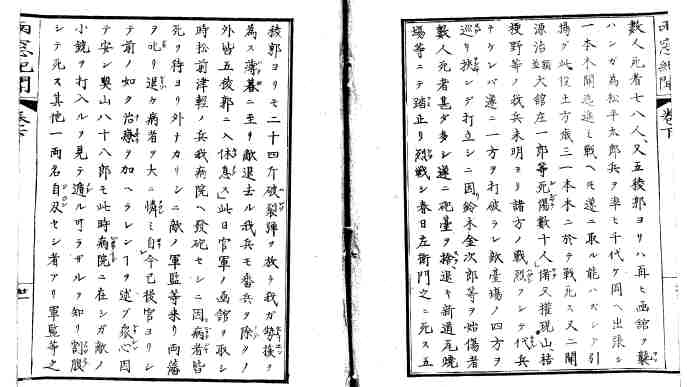 數人死者七八人、又五稜郭ヨリハ再ヒ函館ヲ襲
ハンガ為松平太郎兵ヲ率ヒ千代ケ岡ヘ出張シ
一本木関迄進ミ戦ヘトモ遂ニ取ル能ハズシテ引
揚グ此役土方歳三一本木ニ於テ戦死ス又二関
源治 大館左一郎等死傷數十人 又権現山
兵未明ヨリ諸方ノ戦烈フシテ代兵
ナケレバ遂ニ一方ヲ打破ラレ敵臺場ノ四方ヲ
巡リ挟ンデ打立シニ因鈴木金次郎等ヲ始傷者
數人死者甚ダ多シ遂ニ砲臺ヲ捨退キ新道瓦焼
場等ニテ踏止リ烈戦シ春日左衛門之ニ死ス五
雨窓紀聞 巻下
稜郭ヨリモ二十四斤破裂弾ヲ放テ我ガ勢後ヲ
為ス薄暮ニ至リ敵退去ル我兵モ番兵ヲ除クノ
外皆五稜郭ニ入休息ス此日官軍ノ函館ヲ取シ
時松前津軽ノ兵我病院ヘ發砲セシニ因病者皆
死ヲ待ヨリ外ナカリシニ敵ノ軍監等来リ両藩
ヲ叱リ退ケ病者ヲ大ニ憐ミ自今已後官ヨリシ
テ前ノ如ク治療ヲ加ヘラレンヿヲ述ブ衆心因
テ安シ奥山八十八郎モ此時病院ニ在シガ敵ノ
小銃ヲ打入ルヲ見テ遁ル可ラザルヲ知リ割腹
シテ死ス其他一両名自刃セシ者アリ軍監等之